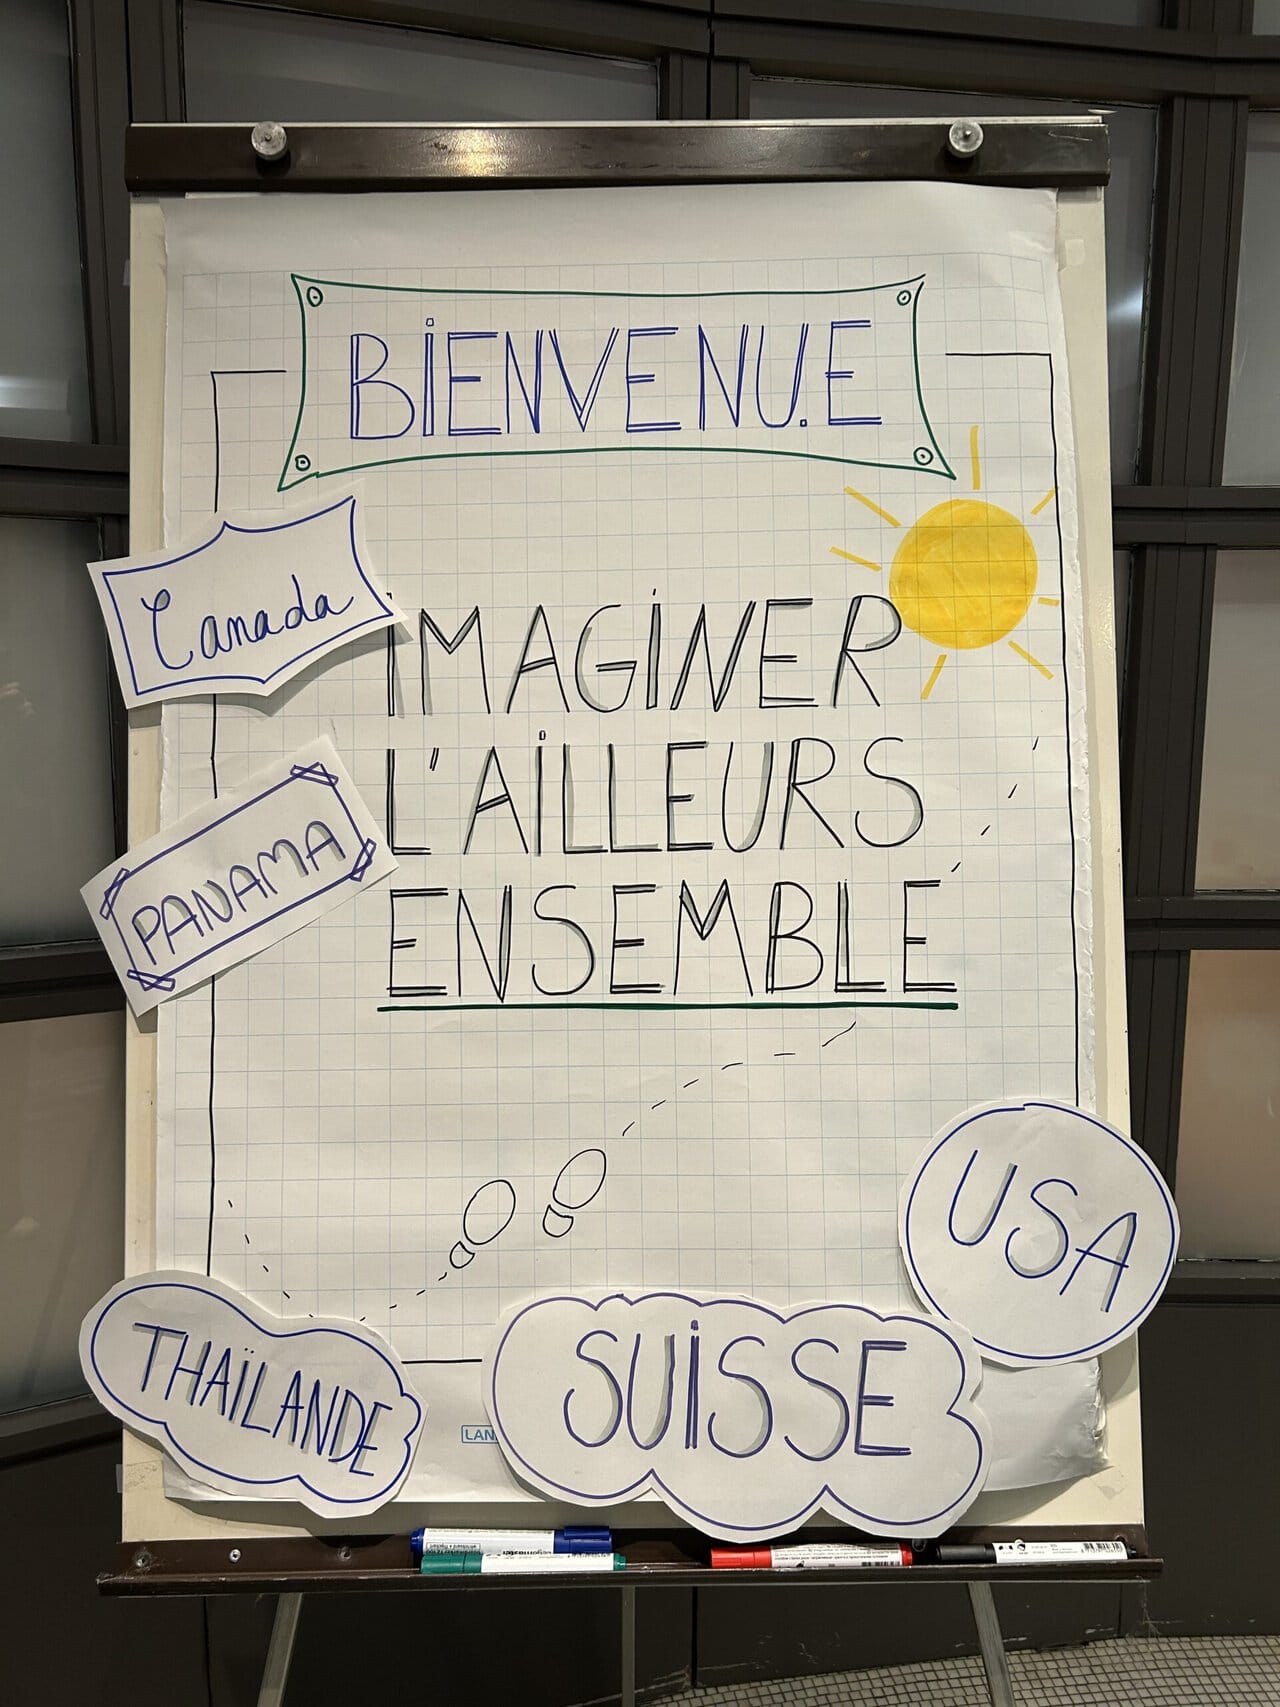 BIENVENU.E
Canada
IMAGINER
L'AILLEURS
PANAMA
ENSEMBLE
USA
THAÏLANDE
SUISSE
LAN